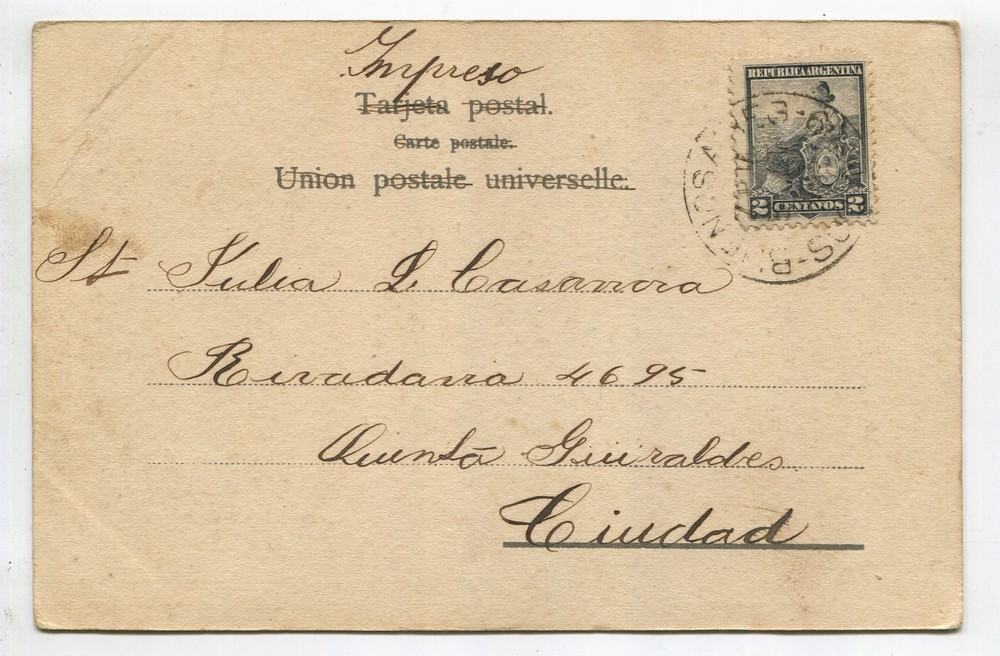 Impreso
Tarjeta postal.
Carte postale.
Union postale universelle.
REPUBLICA ARGENTINA
2 CENTAVOS 2
St Julia L Casanova
Rivadavia 4695
Quinta Guiraldes
Ciudad